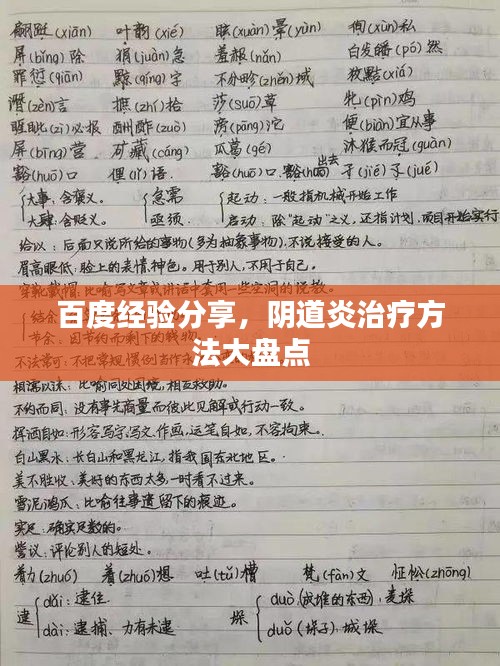 翩跹(xiān) 叶韵(xié) 眩(xuàn)晕(yùn) 徇(xùn)私
屏(bǐng)除 狷(juàn)急 羞赧(nǎn) 白发皤(pó)然
罪愆(qiān) 黥(qíng)字 不分畛(zhěn)域 狡黠(xiá)
谮(zèn)言 摭(zhí)拾 莎(suō)草 牝(pìn)鸡
睚眦(zì)必报 酬酢(zuò) 滂(pāng)沱 便(biàn)宜从事
屏(bīng)营 矿藏(cáng) 瓜葛(gé) 沐猴而冠(guàn)
豁(huō)口 俚(lǐ)语 豁(huō)口、豁(huō)出去 孑(jié)孓(jué)
大事:含褒义。 急需 起动:一般指机械开始工作
大肆:含贬义。 亟须 启动:除“起动”之义,还指计划、项目开始实行
给以:后面只说所给的事物(多为抽象事物),不说接受的人。
眉高眼低:脸上的表情,神色。用于别人,不用于自己。
穿靴戴帽:比喻写文章或讲话中套用一些空洞的说教。
百度经验分享,阴道炎治疗方
法大盘点
相濡以沫:比喻同处困境,相互救助。
不约而同:没有事先商量而彼此见解或行动一致。
挥洒自如:形容写字、写文、作画,运笔自如,不容拘束。
白山黑水:长白山和黑龙江,指我国东北地区。
美不胜收:美好的东西太多,一时看不过来。
雪泥鸿爪:比喻往事遗留下的痕迹。
实足:确实足数的。
訾议:评论别人的短处。
着力(zhuó) 着(zhuó)想 吐(tǔ)槽 梵(fàn)文 怔忪(zhōng)
逮 dǎi:逮住 垛 duò(成堆的东西):麦垛
dài:逮捕、力有未逮 duǒ(垛子):城垛